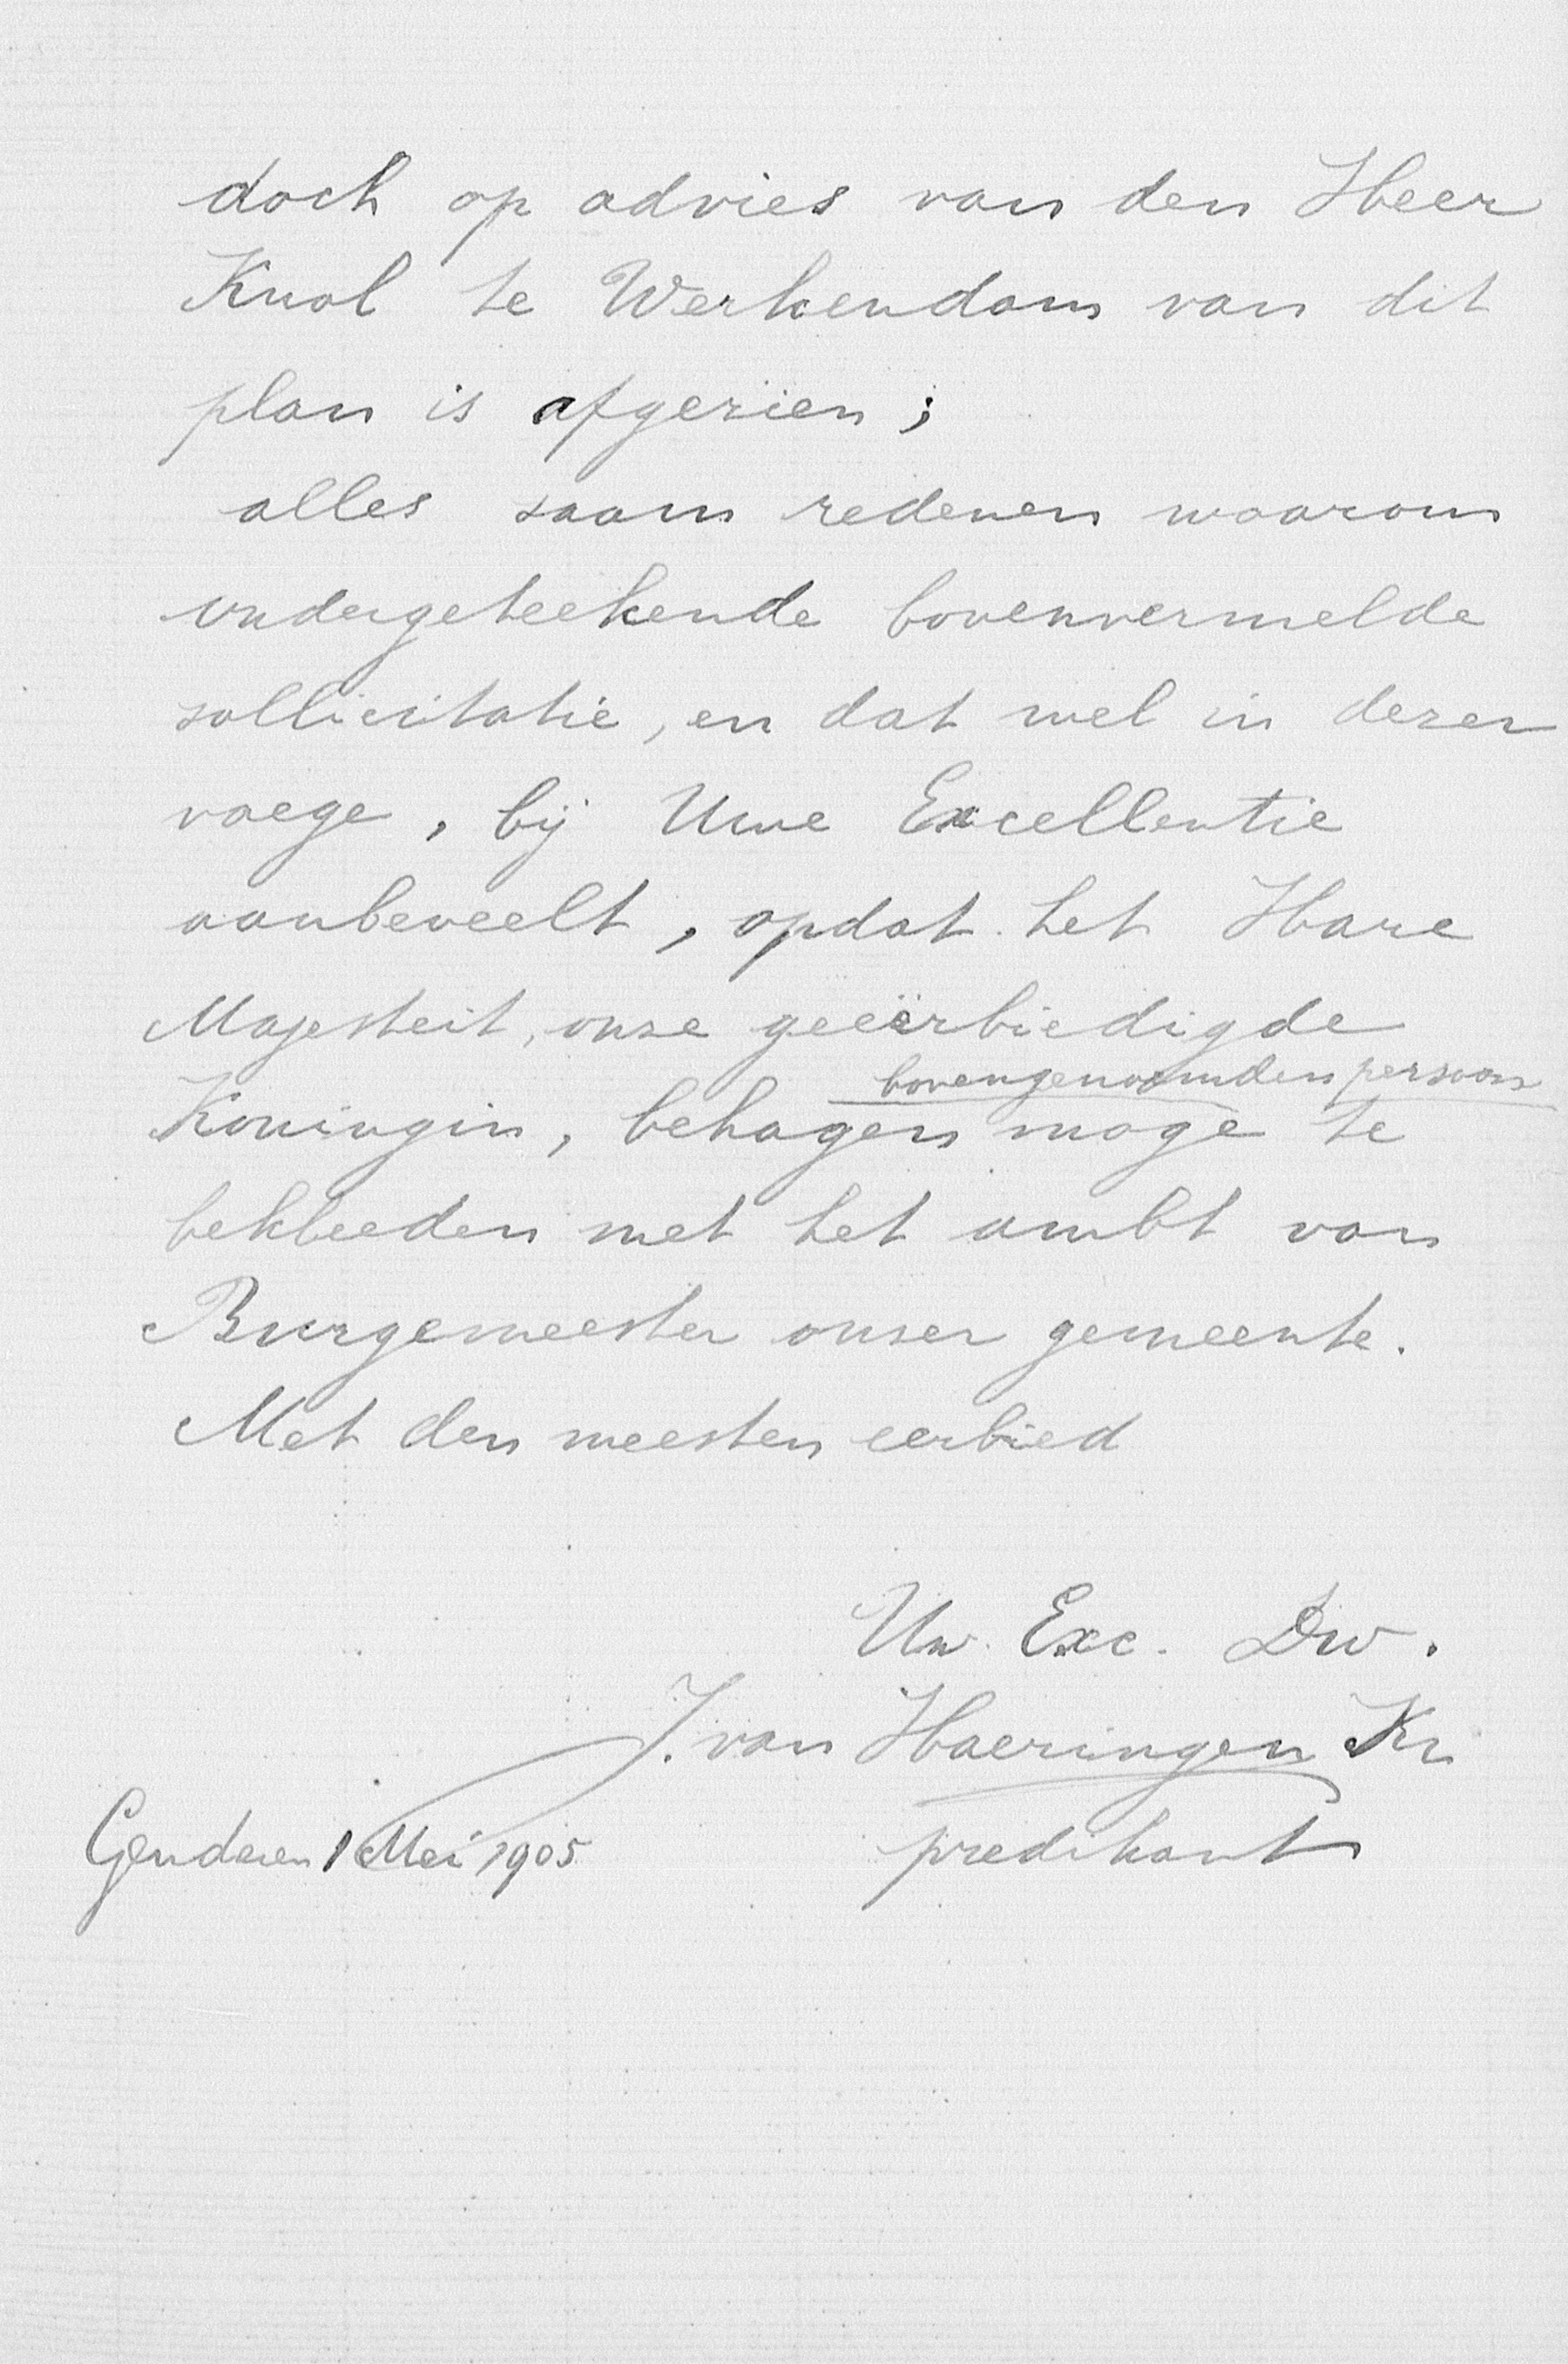 doch op advies van den Heer
Knol te Werkendam van dit
plan is afgezien;
alles saam redenen waarom
ondergeteekende bovenvermelde
sollicitatie, en dat wel in dezer
voege, bij Uwe Excellentie
aanbeveelt, opdat het Hare
Majesteit, onze geëerbiedigde
bovengenoemden persoon
Koningin, behagen moge te
bekleeden met het ambt van
Burgemeester onzer gemeente.
Met den meesten eerbied
Uw. Exc. Dw.
J. van Haeringen
Genderen 1 Mei 1905
predikant